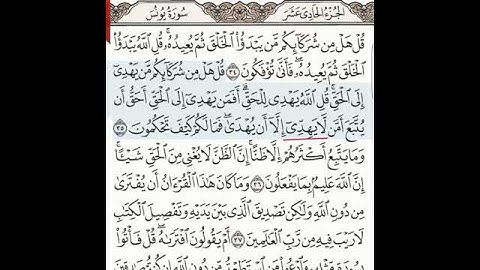 سُورَةُ يُونُسَ
الجُزْءُ الحَادِي عَشَرَ
قُلْ هَلْ مِن شُرَكَآئِكُم مَّن يَبْدَؤُا۟ ٱلْخَلْقَ ثُمَّ يُعِيدُهُۥ ۚ قُلِ ٱللَّهُ يَبْدَؤُا۟
ٱلْخَلْقَ ثُمَّ يُعِيدُهُۥ ۖ فَأَنَّىٰ تُؤْفَكُونَ ٣٤ قُلْ هَلْ مِن شُرَكَآئِكُم مَّن يَهْدِىٓ
إِلَى ٱلْحَقِّ ۚ قُلِ ٱللَّهُ يَهْدِى لِلْحَقِّ ۗ أَفَمَن يَهْدِىٓ إِلَى ٱلْحَقِّ أَحَقُّ أَن
يُتَّبَعَ أَمَّن لَّا يَهِدِّىٓ إِلَّآ أَن يُهْدَىٰ ۖ فَمَا لَكُمْ كَيْفَ تَحْكُمُونَ ٣٥
وَمَا يَتَّبِعُ أَكْثَرُهُمْ إِلَّا ظَنًّا ۚ إِنَّ ٱلظَّنَّ لَا يُغْنِى مِنَ ٱلْحَقِّ شَيْـًٔا ۚ
إِنَّ ٱللَّهَ عَلِيمٌۢ بِمَا يَفْعَلُونَ ٣٦ وَمَا كَانَ هَٰذَا ٱلْقُرْءَانُ أَن يُفْتَرَىٰ
مِن دُونِ ٱللَّهِ وَلَٰكِن تَصْدِيقَ ٱلَّذِى بَيْنَ يَدَيْهِ وَتَفْصِيلَ ٱلْكِتَٰبِ
لَا رَيْبَ فِيهِ مِن رَّبِّ ٱلْعَٰلَمِينَ ٣٧ أَمْ يَقُولُونَ ٱفْتَرَىٰهُ ۖ قُلْ فَأْتُوا۟
بِسُورَةٍ مِّثْلِهِۦ وَٱدْعُوا۟ مَنِ ٱسْتَطَعْتُم مِّن دُونِ ٱللَّهِ إِن كُنتُمْ صَٰدِقِينَ